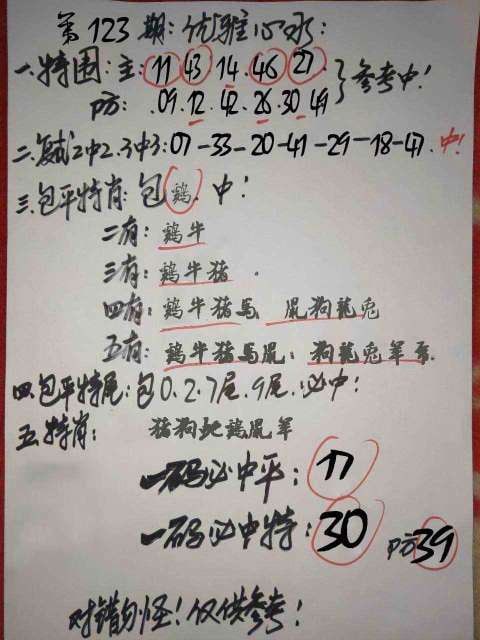 第123期:优雅心水:
一.特围:主:11 43 14.46 27.
防:.09.12.42.26.30.49 参考中!
二.复式2中2.3中3:07-33-20-41-29-18-47.中!
三.包平特肖:包鷄.中!
二有:鷄牛
三有:鷄牛猪.
四有:鷄牛猪馬 鼠狗龍兔
五有:鷄牛猪馬鼠:狗龍兔羊
四.包平特尾:包0.2.7尾.9尾.必中!
五.特肖:猪狗蛇鷄鼠羊
一码必中平:17
一码必中特:30 防39
对错勿怪!仅供参考!